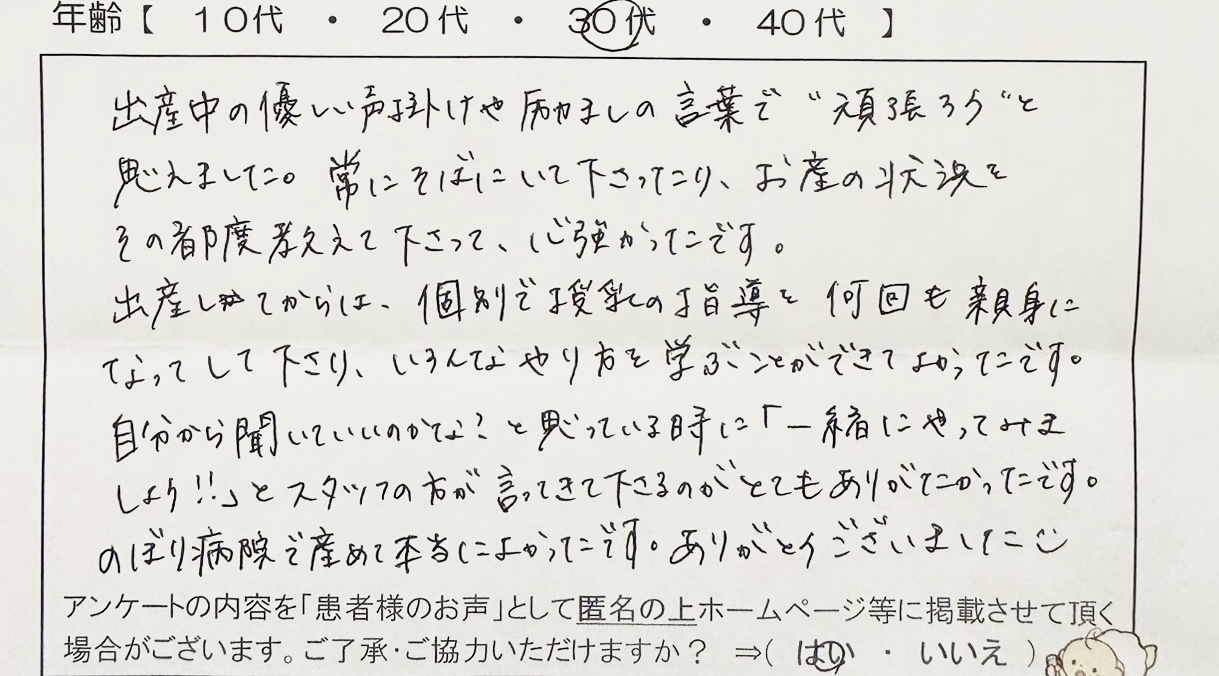 年齢【 10代 ・ 20代 ・ 30代 ・ 40代 】
出産中の優しい声掛けや励ましの言葉で“頑張ろう”と
思えました。常にそばにいて下さったり、お産の状況を
その都度教えて下さって、心強かったです。
出産してからは、個別で授乳の指導を何回も親身に
なってして下さり、いろんなやり方を学ぶことができてよかったです。
自分から聞いていいのかな?と思っている時に「一緒にやってみま
しょう!!」とスタッフの方が言ってきて下さるのがとてもありがたかったです。
のぼり病院で産めて本当によかったです。ありがとうございました
アンケートの内容を「患者様のお声」として匿名の上ホームページ等に掲載させて頂く
場合がございます。ご了承・ご協力いただけますか? ⇒( はい ・ いいえ )